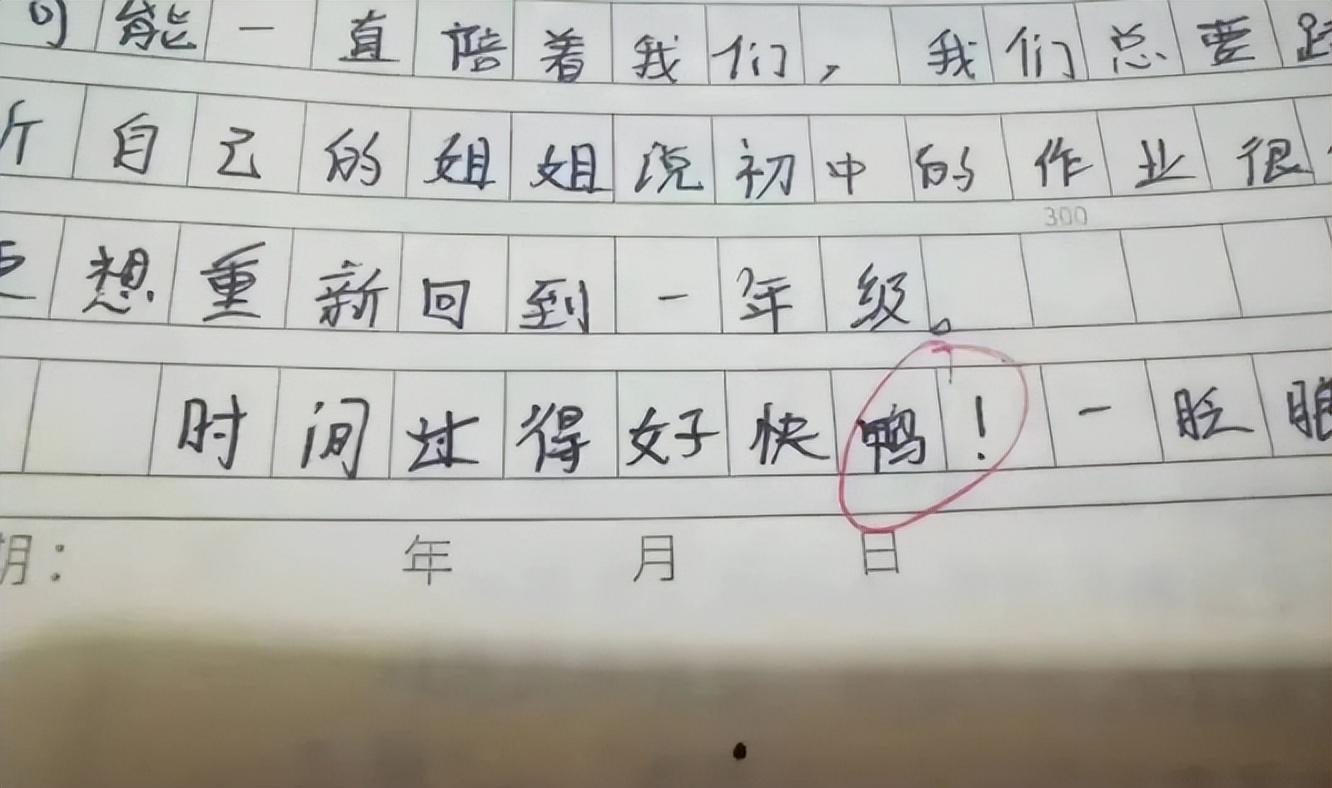 可能一直陪着我们,我们总要
听自己的姐姐说初中的作业很
想重新回到一年级。
300
时间过得好快鸭!一眨眼
期: 年 月 日